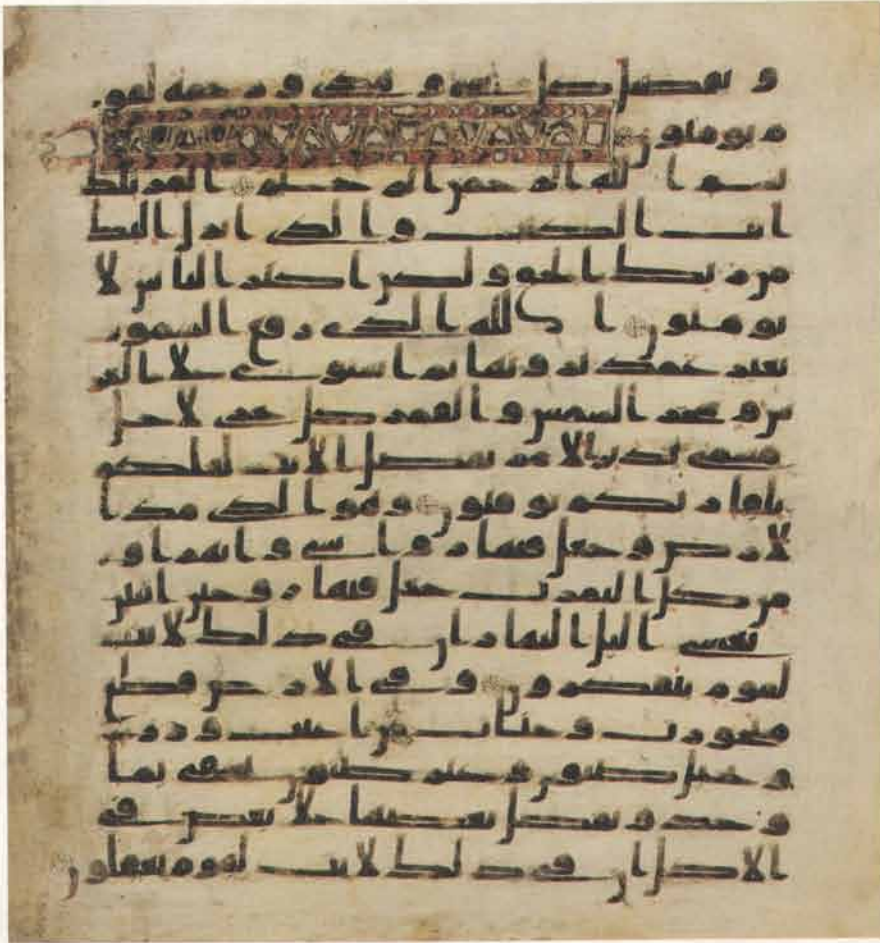 و تفصيل كل شى و هدى و رحمة لقو
م يومنون
بسم الله الرحمن الرحيم المر تلك
ايت الكتب و الذى انزل اليك
من ربك الحق و لكن اكثر الناس لا
يومنون الله الذى رفع السموت
بغير عمد ترونها ثم استوى على العر
ش و سخر الشمس و القمر كل يجرى لاجل
مسمى يدبر الامر يفصل الايت لعلكم
بلقا ربكم توقنون وهو الذى مد ا
لارض و جعل فيها رواسى و انهرا و
من كل الثمرت جعل فيها زوجين اثنين
يغشى اليل النهار ان فى ذلك لايت
لقوم يتفكرون و فى الارض قطع
متجورت و جنات من اعنب و زرع
و نخيل صنون و غير صنون يسقى بما
وحد و نفضل بعضها على بعض فى
الاكل ان فى ذلك لايت لقوم يعقلون